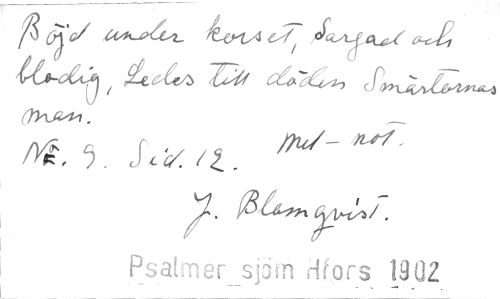 Böjd under korset, Sargad och
blodig, Ledes till döden Smärtornas
man.
No. 9. Sid. 12. Mel-not.
J. Blomqvist.
Psalmer sjöm Hfors 1902